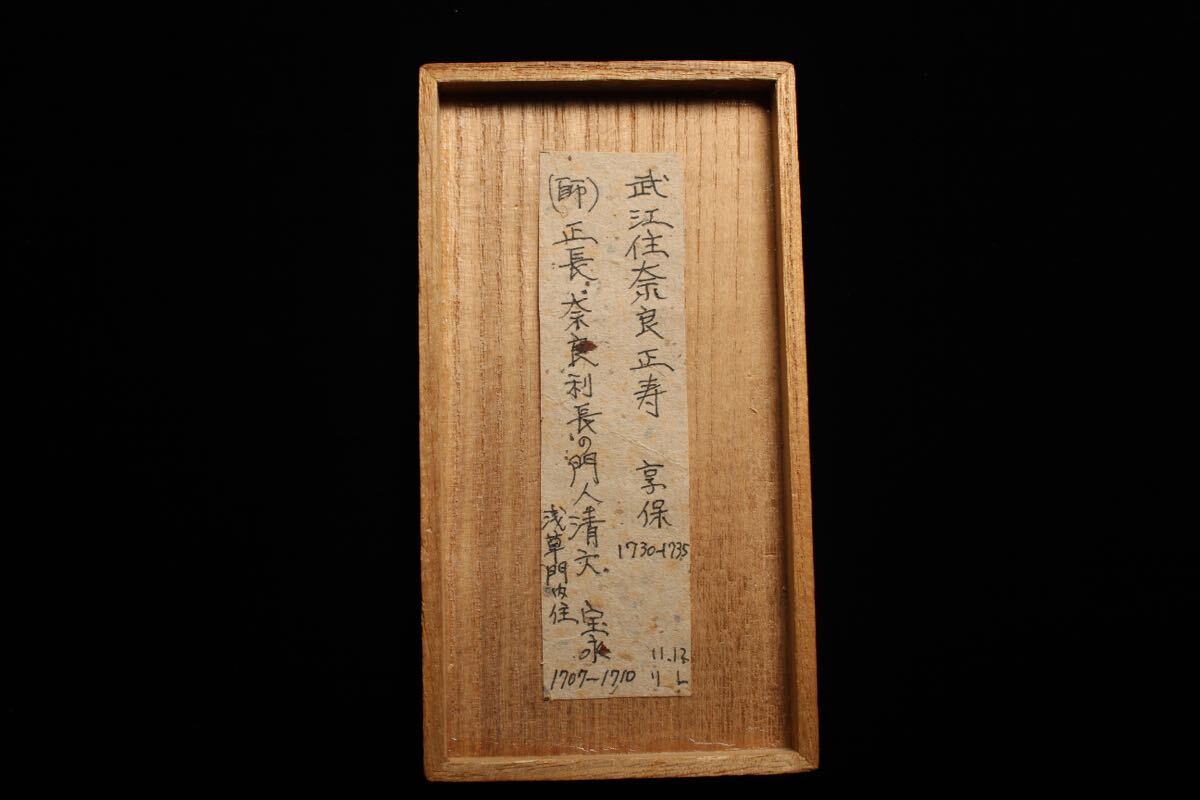 武江住奈良正寿 享保
1730-1735
(師)正長.奈良利長の門人清六. 宝永
浅草門内住
1707~1710
11.12